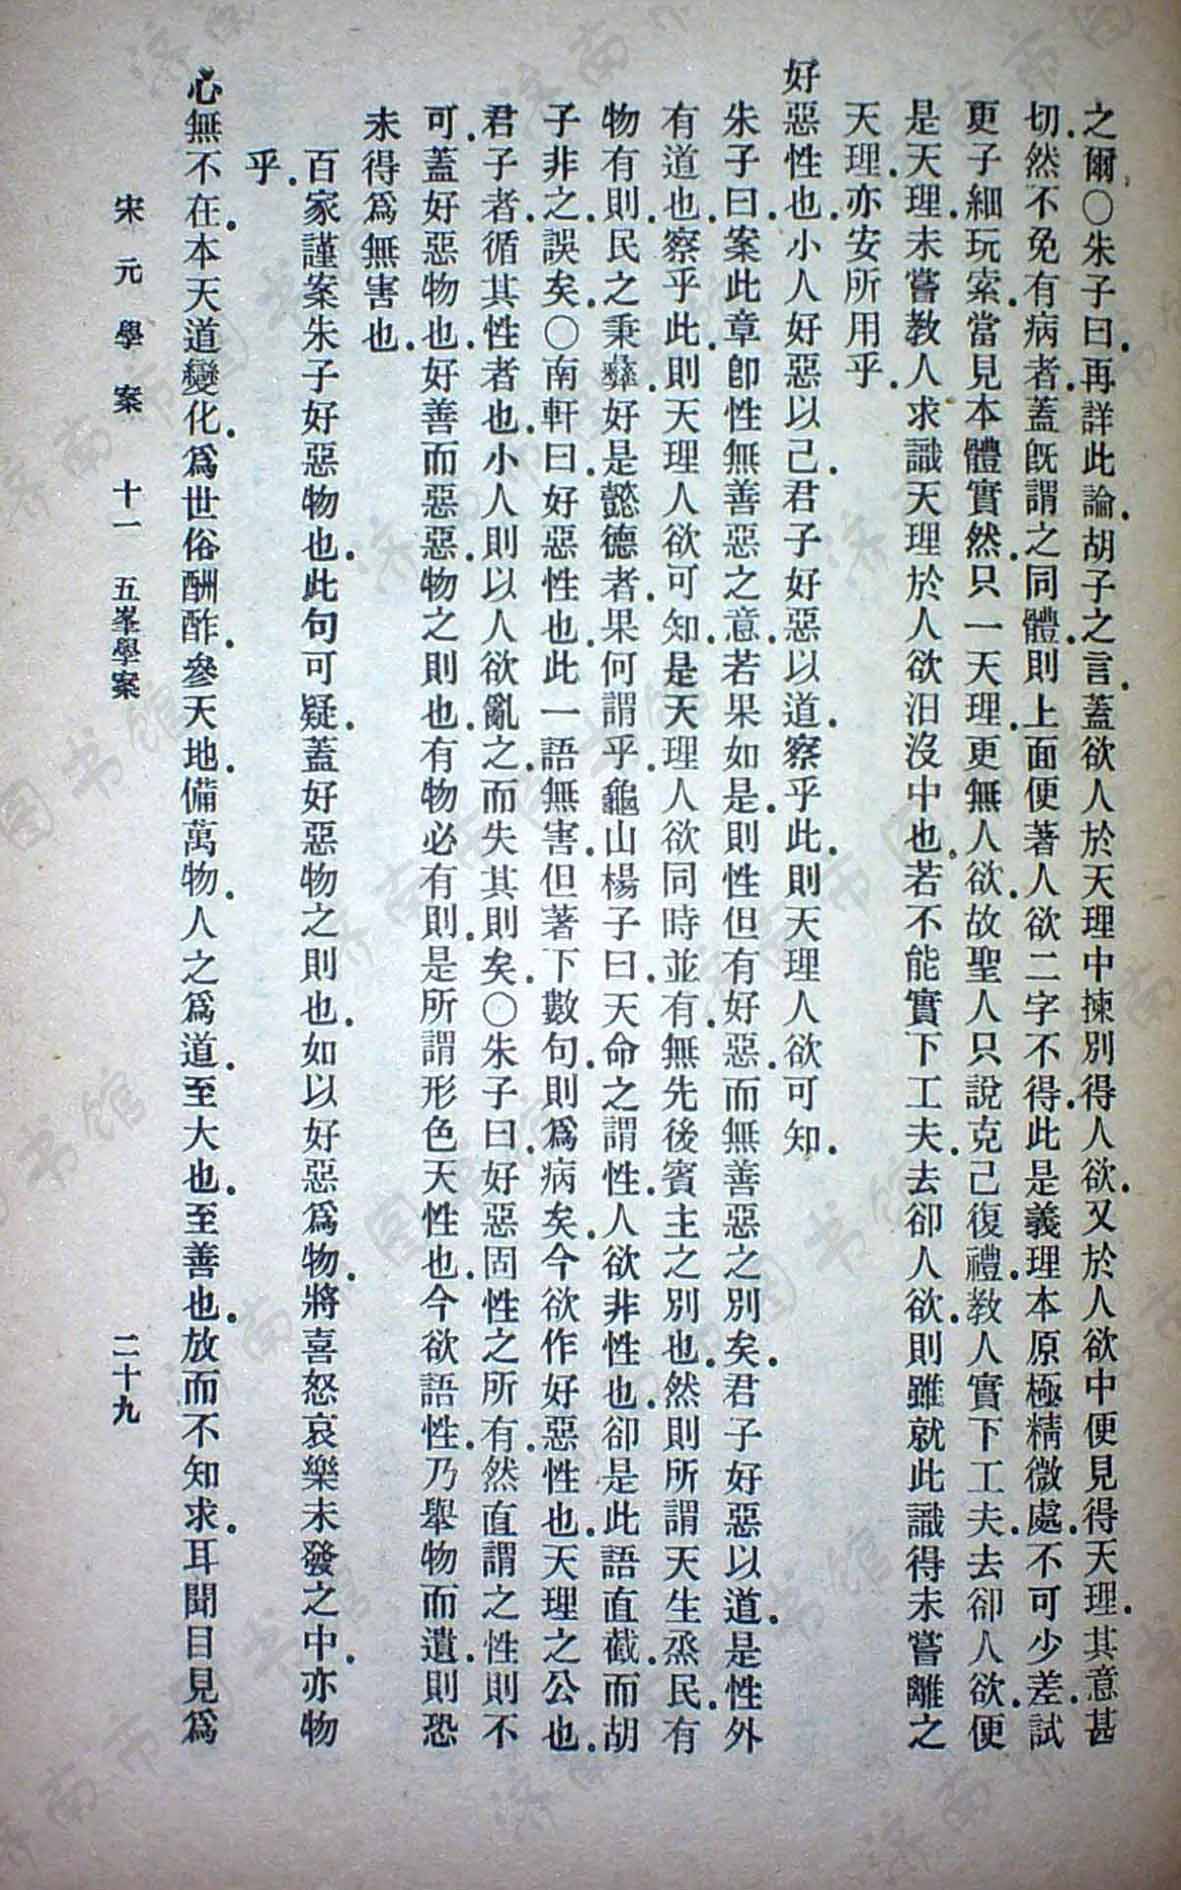 之爾○朱子曰.再詳此論.胡子之言.蓋欲人於天理中揀別得人欲.又於人欲中便見得天理.其意甚
切.然不免有病者.蓋旣謂之同體.則上面便著人欲二字不得.此是義理本原極精微處.不可少差.試
更子細玩索.當見本體實然.只一天理.更無人欲.故聖人只說克己復禮.敎人實下工夫.去卻人欲.便
是天理.未嘗敎人求識天理於人欲汨沒中也.若不能實下工夫.去卻人欲.則雖就此識得未嘗離之
天理.亦安所用乎.
好惡性也.小人好惡以己.君子好惡以道.察乎此.則天理人欲可知.
朱子曰.案此章卽性無善惡之意.若果如是.則性但有好惡.而無善惡之別矣.君子好惡以道.是性外
有道也.察乎此.則天理人欲可知.是天理人欲同時並有.無先後賓主之別也.然則所謂天生烝民.有
物有則.民之秉彝.好是懿德者.果何謂乎.龜山楊子曰.天命之謂性.人欲非性也.卻是此語直截.而胡
子非之.誤矣.○南軒曰.好惡性也.此一語無害.但著下數句.則爲病矣.今欲作好惡性也.天理之公也.
君子者.循其性者也.小人則以人欲亂之.而失其則矣.○朱子曰.好惡固性之所有.然直謂之性則不
可.蓋好惡物也.好善而惡惡.物之則也.有物必有則.是所謂形色天性也.今欲語性.乃舉物而遺則.恐
未得爲無害也.
百家謹案朱子好惡物也.此句可疑.蓋好惡物之則也.如以好惡爲物.將喜怒哀樂未發之中.亦物
乎.
心無不在.本天道變化.爲世俗酬酢.參天地.備萬物.人之爲道.至大也.至善也.放而不知求.耳聞目見爲
宋元學案 十一 五峯學案 二十九
济南市图书馆